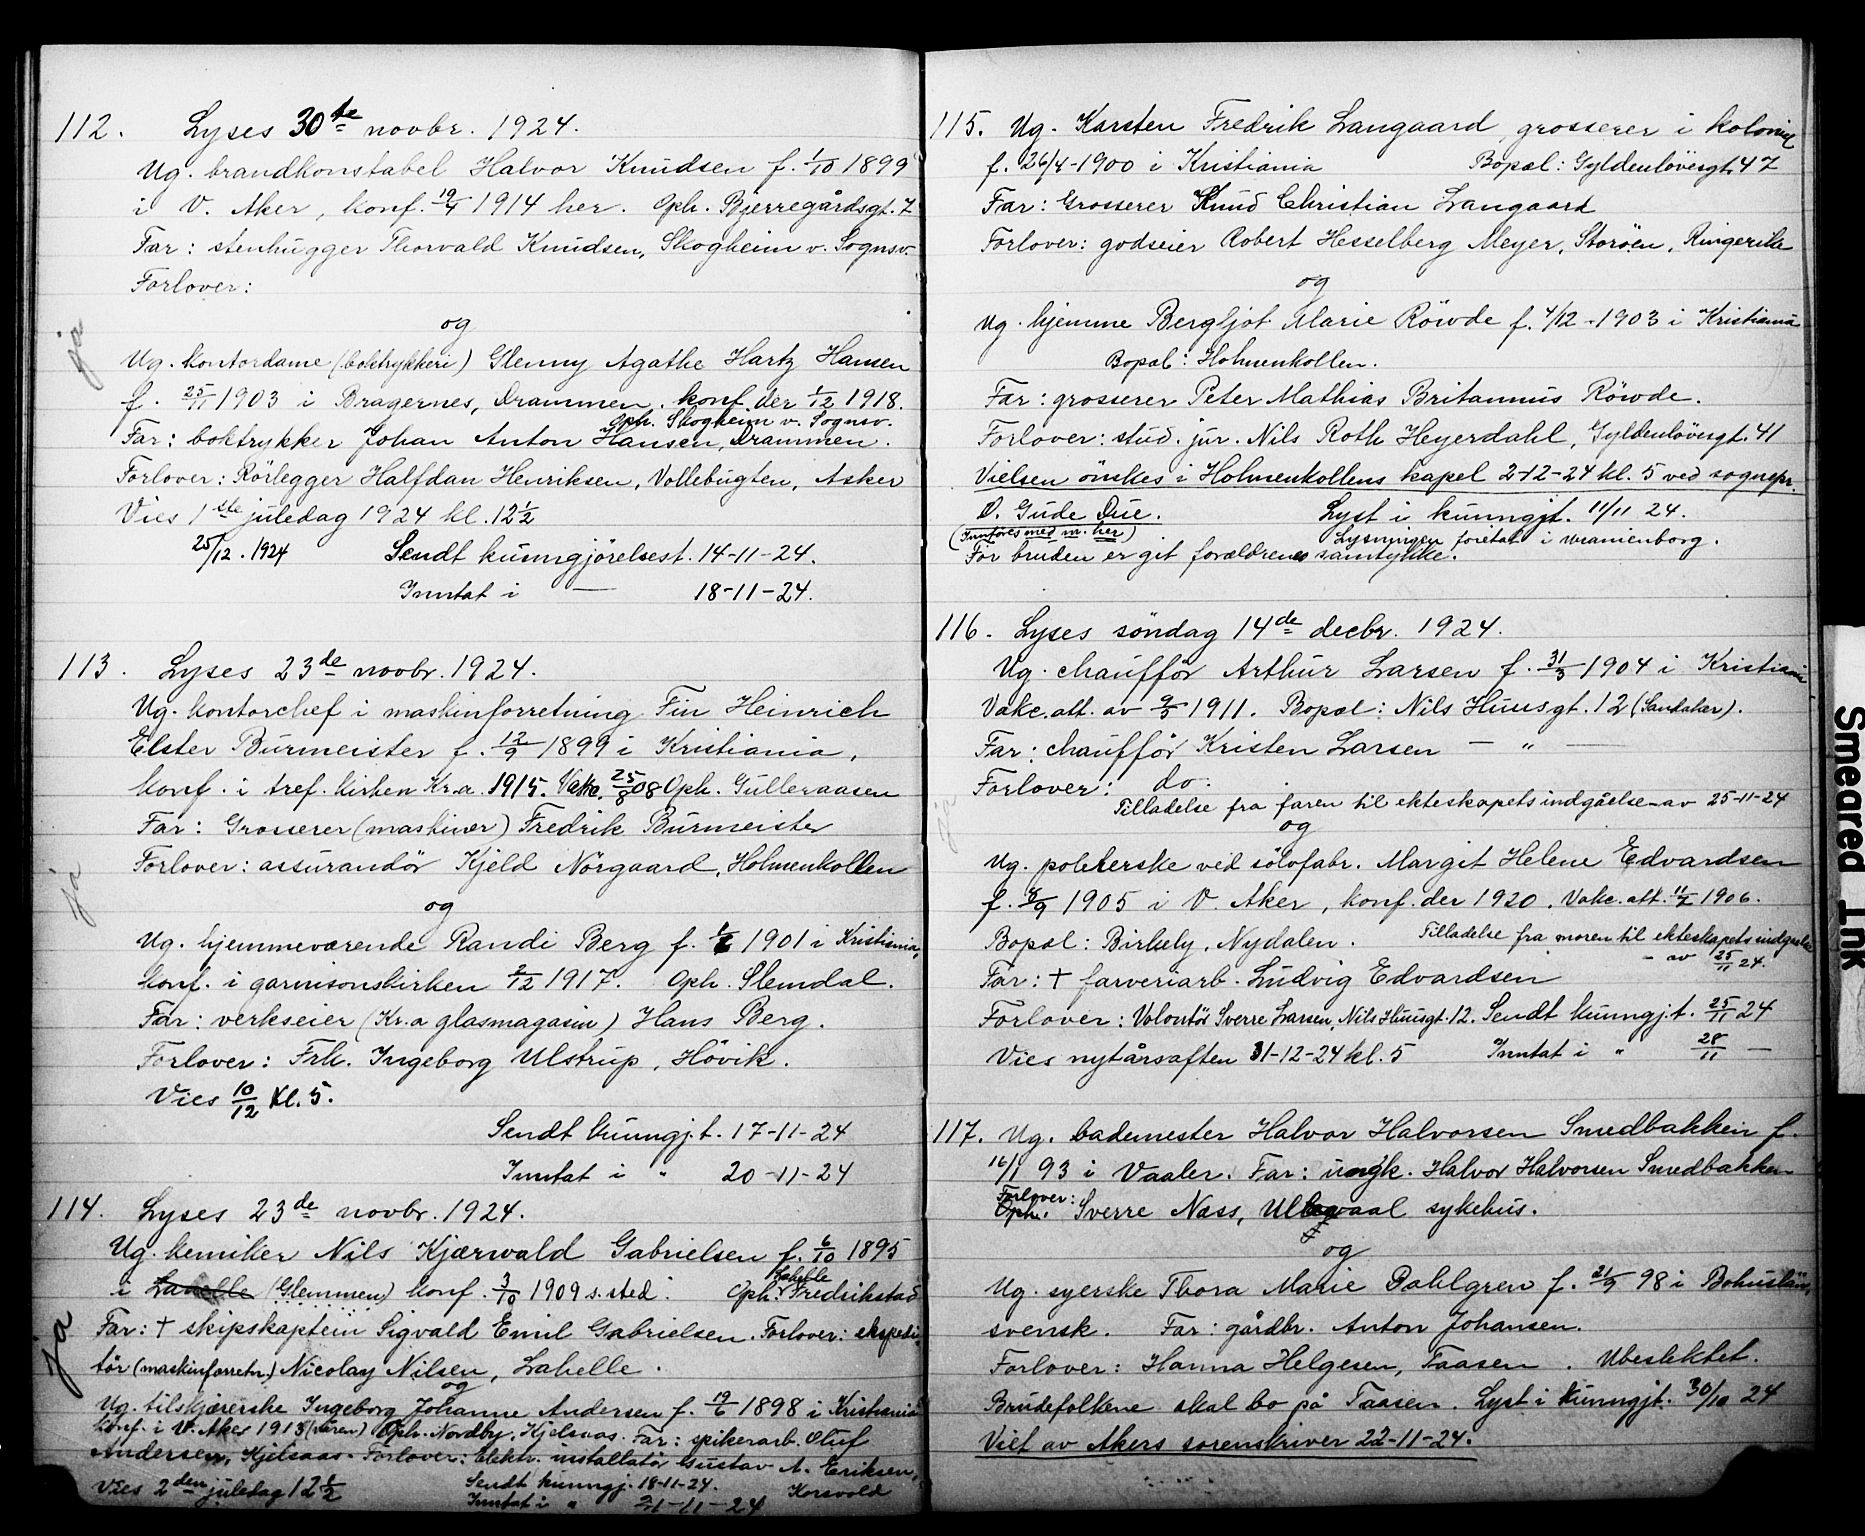 112. Lyses 30te novbr. 1924.
Ug. brandkonstabel Halvor Knudsen f. 1/10 1899
i V. Aker, konf. 19/4 1914 her. Oph. Bjerregårdsgt. 7
Far: stenhugger Thorvald Knudsen, Skogheim v. Sognsv.
Forlover:
og
ja
Ug. kontordame (boktrykkeri) Glenny Agathe Hartz Hansen
f. 25/11 1903 i Bragernes, Drammen. konf. der 1/12 1918.
oph. Skogheim v. Sognsv.
Far: boktrykker Johan Anton Hansen, Drammen.
Forlover: Rörlegger Halfdan Henriksen, Vollebugten, Asker
Vies 1ste juledag 1924 kl. 12 1/2
25/12. 1924 Sendt kunngjörelsest. 14-11-24.
Inntat i — 18-11-24.
113. Lyses 23de novbr. 1924.
Ug. kontorchef i maskinforretning Fin Heinrich
Elster Burmeister f. 12/9 1899 i Kristiania,
konf. i tref. kirken Kr.a. 1915. Vakc. 25/8 08 Oph. Gulleraasen
Far: Grosserer (maskiner) Fredrik Burmeister
Forlover: assurandör Kjeld Nörgaard, Holmenkollen
ja
og
Ug. hjemmeværende Randi Berg f. 1901 i Kristiania,
konf. i garnisonskirken 2/12 1917. Oph. Slemdal.
Far: verkseier (Kr.a glasmagasin) Hans Berg.
Forlover: Frk. Ingeborg Ulstrup, Hövik.
Vies 10/12 kl. 5.
Sendt kunngj.t. 17-11-24
Inntat i " 20-11-24
114. Lyses 23de novbr. 1924.
Ug. kemiker Nils Kjærwald Gabrielsen f. 6/10 1895
Lahelle
i Lahelle (Glemmen) konf. 3/10 1909 s. sted. Oph. Fredrikstad
ja
Far: + skipskaptein Sigvald Emil Gabrielsen. Forlover: ekspedi-
tör (maskinforretn.) Nicolay Nilsen, Lahelle.
og
Ug. tilskjærerske Ingeborg Johanne Andersen f. 19/6 1898 i Kristiania
konf. i V. Aker 1913 (våren) Oph. Nordby, Kjelsaas. Far: spikerarb. Oluf
Andersen, Kjelsaas. Forlover: Elektr. installatör Gustav A. Eriksen,
Korsvold
Vies 2den juledag 12 1/2 Sendt kunngj. 18-11-24.
Inntat i " 21-11-24
115. Ug. Karsten Fredrik Langaard, grosserer i kolonial
f. 26/4-1900 i Kristiania Bopæl: Gyldenlövesgt. 47
Far: Grosserer Knud Christian Langaard
Forlover: godseier Robert Hesselberg Meyer, Storöen, Ringerike
og
Ug. hjemme Bergljot Marie Röwde f. 4/12-1903 i Kristiania
Bopæl: Holmenkollen.
Far: grosserer Peter Mathias Britannus Röwde.
Forlover: stud. jur. Nils Roth Heyerdahl, Gyldenlövesgt. 41
Vielsen önskes i Holmenkollens kapel 2-12-24 kl. 5 ved sognepr.
O. Gude Due. Lyst i kunngjt. 11/11 24.
(Innföres med nr. her). Lysningen foretat i Uranienborg.
For bruden er git forældrenes samtykke.
116. Lyses söndag 14de decbr. 1924.
Ug. chafför Arthur Larsen f. 31/3 1904 i Kristiania
Vakc. att. av 9/5 1911. Bopæl: Nils Huusgt. 12 (Sandaker).
Far: chafför Kristen Larsen — " —
Forlover: do.
Tilladelse fra faren til ekteskapets indgåelse av 25-11-24
ja
og
Ug. polererske ved sölvfabr. Margit Helene Edvardsen
f. 8/9 1905 i V. Aker, konf. der 1920. Vakc. att. 11/7 1906.
Bopæl: Birkely, Nydalen. Tilladelse fra moren til ekteskapets indgåelse
- av 25/11 24.
Far: + farveriarb. Ludvig Edvardsen
Forlover: Volontör Sverre Larsen, Nils Huusgt. 12. Sendt kunngj.t. 25/11 24
Vies nytårsaften 31-12-24 kl. 5 Inntat i " 28/11 —
117. Ug. bademester Halvor Halvorsen Smedbakken f.
16/1 93 i Vaaler. Far: ungk. Halvor Halvorsen Smedbakken
Forlover:
Oph. Sverre Næss, Ullevaal sykehus.
og
Ug. syerske Thora Marie Dahlgren f. 21/9 98 i Bohuslän,
svensk. Far: gårdbr. Anton Johansen.
Forlover: Hanna Helgesen, Taasen. Ubeslektet.
Brudefolkene skal bo på Taasen. Lyst i kunngjt. 30/10 24
Viet av Akers sorenskriver 22-11-24.
Smeared Ink